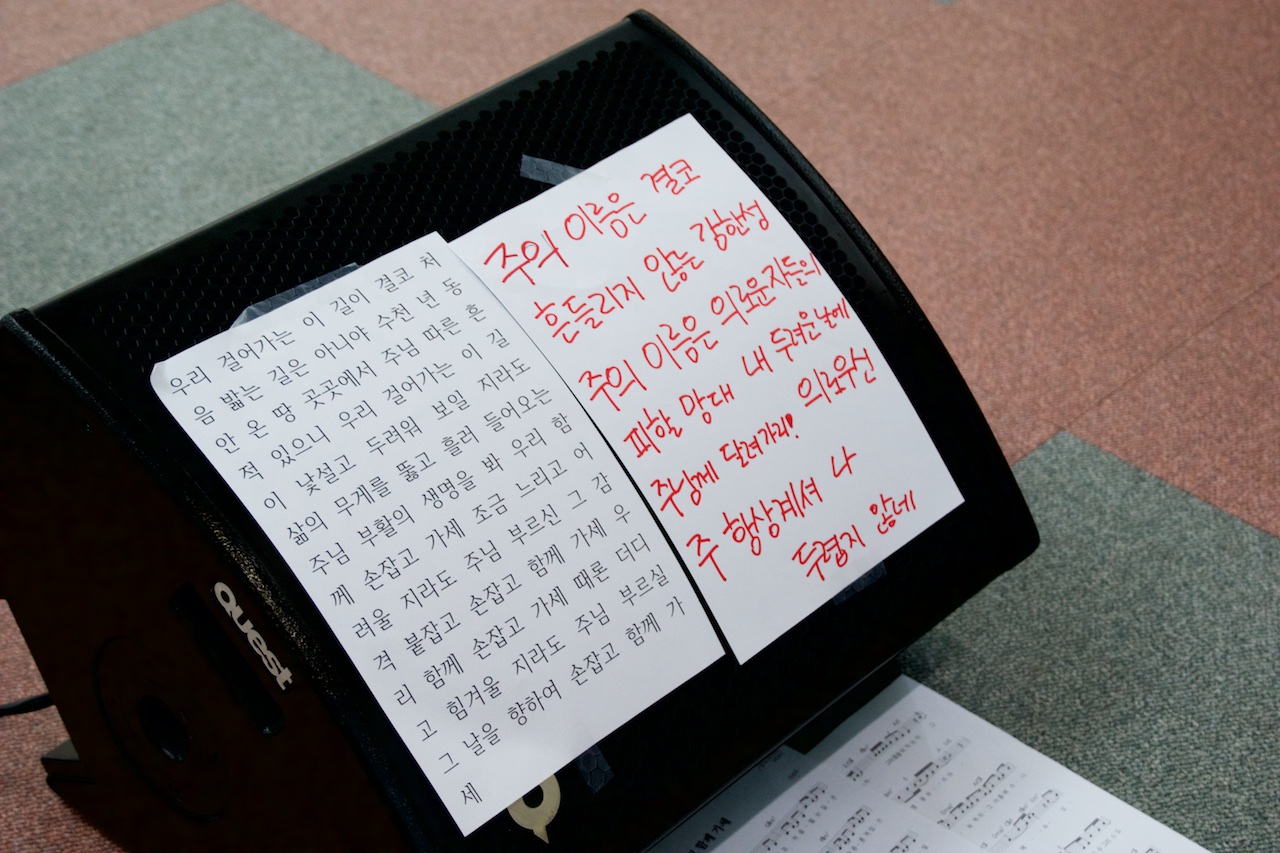 우리 걸어가는 이 길이 결코 처
음 밟는 길은 아니야 수천 년 동
안 온 땅 곳곳에서 주님 따른 흔
적 있으니 우리 걸어가는 이 길
이 낯설고 두려워 보일 지라도
삶의 무게를 뚫고 흘러 들어오는
주님 부활의 생명을 봐 우리 함
께 손잡고 가세 조금 느리고 어
려울 지라도 주님 부르신 그 감
격 붙잡고 손잡고 함께 가세 우
리 함께 손잡고 가세 때론 더디
고 힘겨울 지라도 주님 부르실
그 날을 향하여 손잡고 함께 가
세
주의 이름은 결코
흔들리지 않는 강한성
주의 이름은 의로운자들의
피할 망대 내 두려운날에
주님께 달려가리! 의로우신
주 항상계셔 나
두렵지 않네
Quest
함께 가세